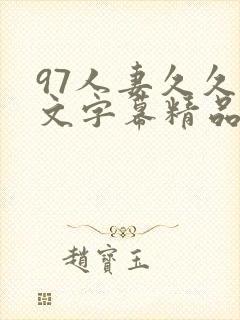 97人妻久久
文字幕精品
趙寶玉